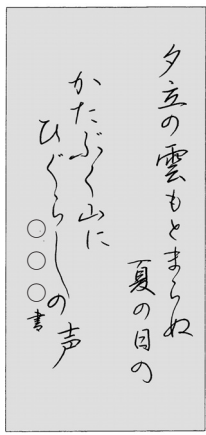 夕立の雲もとまらぬ
夏の日の
かたぶく山に
ひぐらしの声
○○○書